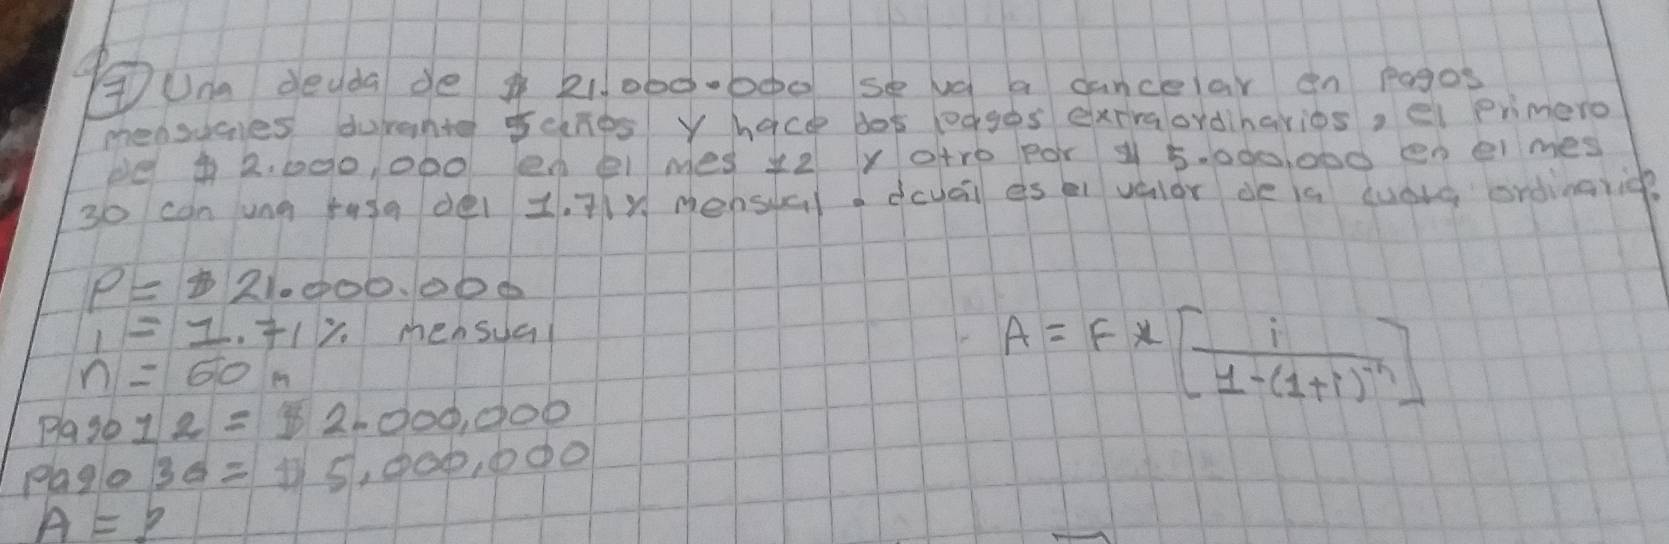 7) Una deuda de $ 21.000.000 se va a cancelar en pagos
mensuales durante 5 años y hace dos pagos extraordinarios, el primero
de $ 2.000,000 en el mes 12 y otro por $ 5.000,000 en el mes
30 con una tasa del 1.71% mensual. ¿cuál es el valor de la cuota ordinaria?
P = $ 21.000.000
i = 1.71% mensual
n = 60 m
Pago 12 = $ 2.000,000
Pago 30 = $ 5,000,000
A = ?
A = F * [ i / 1-(1+i)^-n ]